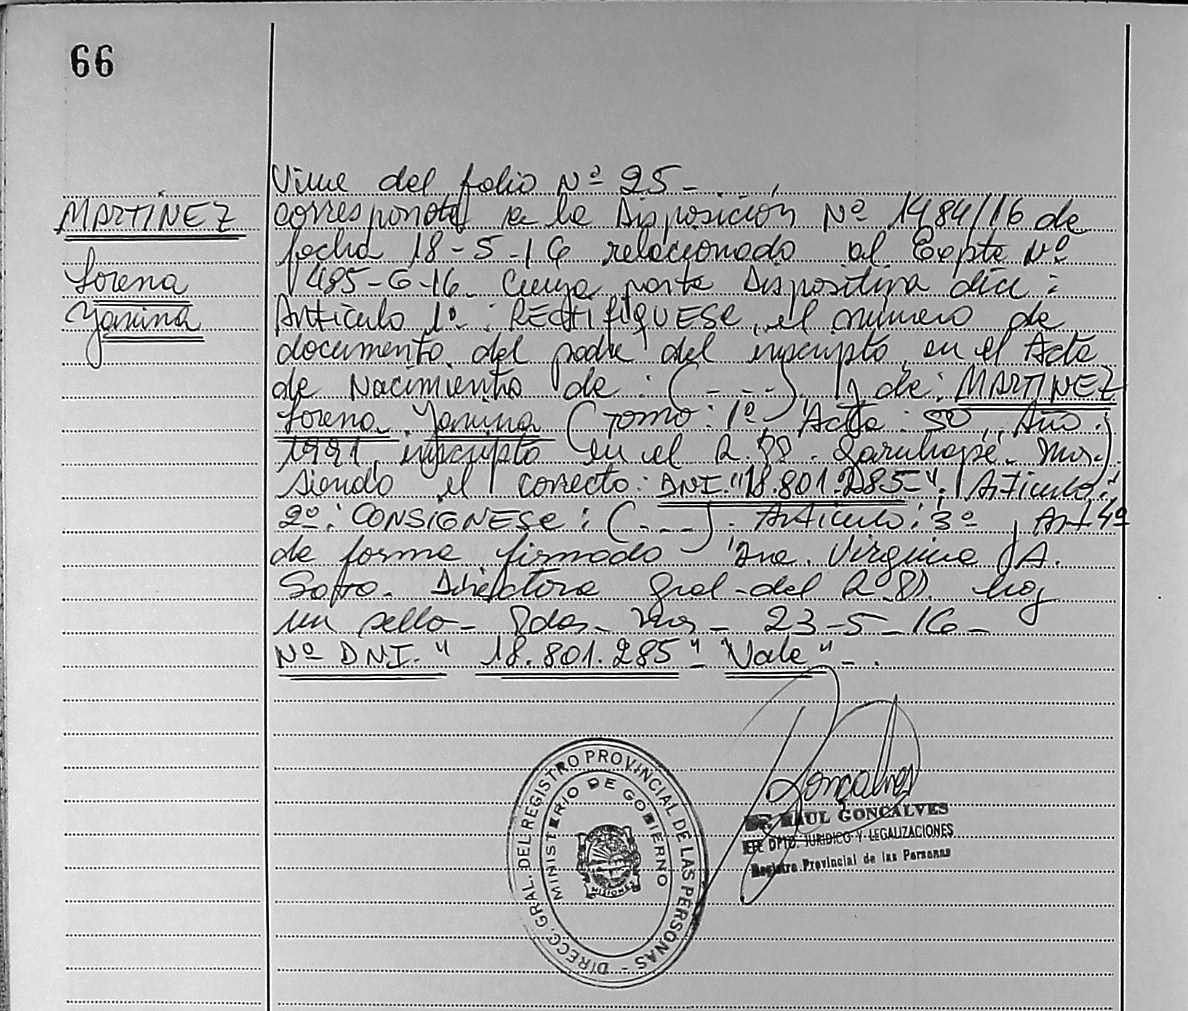 66
MARTINEZ
Lorena
Yanina
Viene del folio Nº 25-.
corresponde a la Disposición Nº 1484/16 de
fecha 18-5-16 relacionado al Expte Nº
485-G-16. Cuya parte Dispositiva dice:
Articulo 1º: RECTIFIQUESE, el número de
documento del padre del inscripto, en el Acta
de Nacimiento de: (---). y de: MARTINEZ
Lorena Yanina (Tomo: 1º, Acta: 50, Año:
1991, inscripto en el R.P. Garuhapé-Mnes.)
siendo el correcto: DNI. "18.801.285-". Articulo:
2º: CONSIGNESE: (---). Articulo: 3º, Art 4º
de forma firmado Virginia A.
Directora Gral-del R.P. hay
un sello- Pdas- Mnes- 23-5-16-
Nº DNI. " 18.801.285"- Vale"-.
Gonçalves
RAUL GONCALVES
JEFE DPTO. JURIDICO Y LEGALIZACIONES
Registro Provincial de las Personas
DIRECC. GRAL. DEL REGISTRO PROVINCIAL DE LAS PERSONAS
MINISTERIO DE GOBIERNO
MISIONES